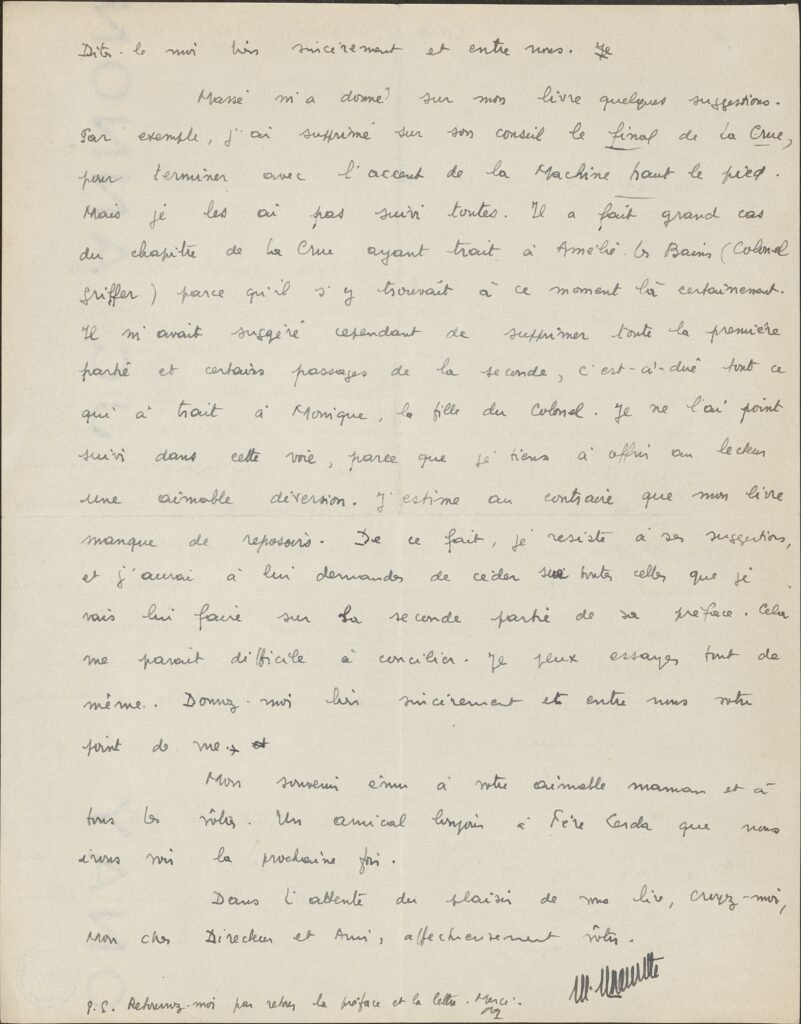 Dites-le moi bien sincèrement et entre nous. Je
Massé m'a donné sur mon livre quelques suggestions.
Par exemple, j'ai supprimé sur son conseil le final de La Crue,
pour terminer avec l'accent de la Machine haut le pied.
Mais je les ai pas suivi toutes. Il a fait grand cas
du chapitre de La Crue ayant trait à Amélie les Bains (Colonel
Griffer) parce qu'il s'y trouvait à ce moment là certainement.
Il m'avait suggéré cependant de supprimer toute la première
partie et certains passages de la seconde, c'est-à-dire tout ce
qui a trait à Monique, la fille du Colonel. Je ne l'ai point
suivi dans cette voie, parce que je tiens à offrir au lecteur
une aimable diversion. J'estime au contraire que mon livre
manque de reposoirs. De ce fait, je resiste à ses suggestions,
et j'aurai à lui demander de céder sur toutes celles que je
vais lui faire sur la seconde partie de sa préface. Cela
me parait difficile à concilier. Je peux essayer tout de
même. Donnez-moi bien sincèrement et entre nous votre
point de vue.
Mon souvenir ému à votre aimable maman et à
tous les vôtres. Un amical bonjour à Père Cerda que nous
irons voir la prochaine fois.
Dans l'attente du plaisir de vous lire, croyez-moi,
Mon cher Directeur et Ami, affectueusement vôtre.
P.S. Retournez-moi par retour la préface et la lettre. Merci.